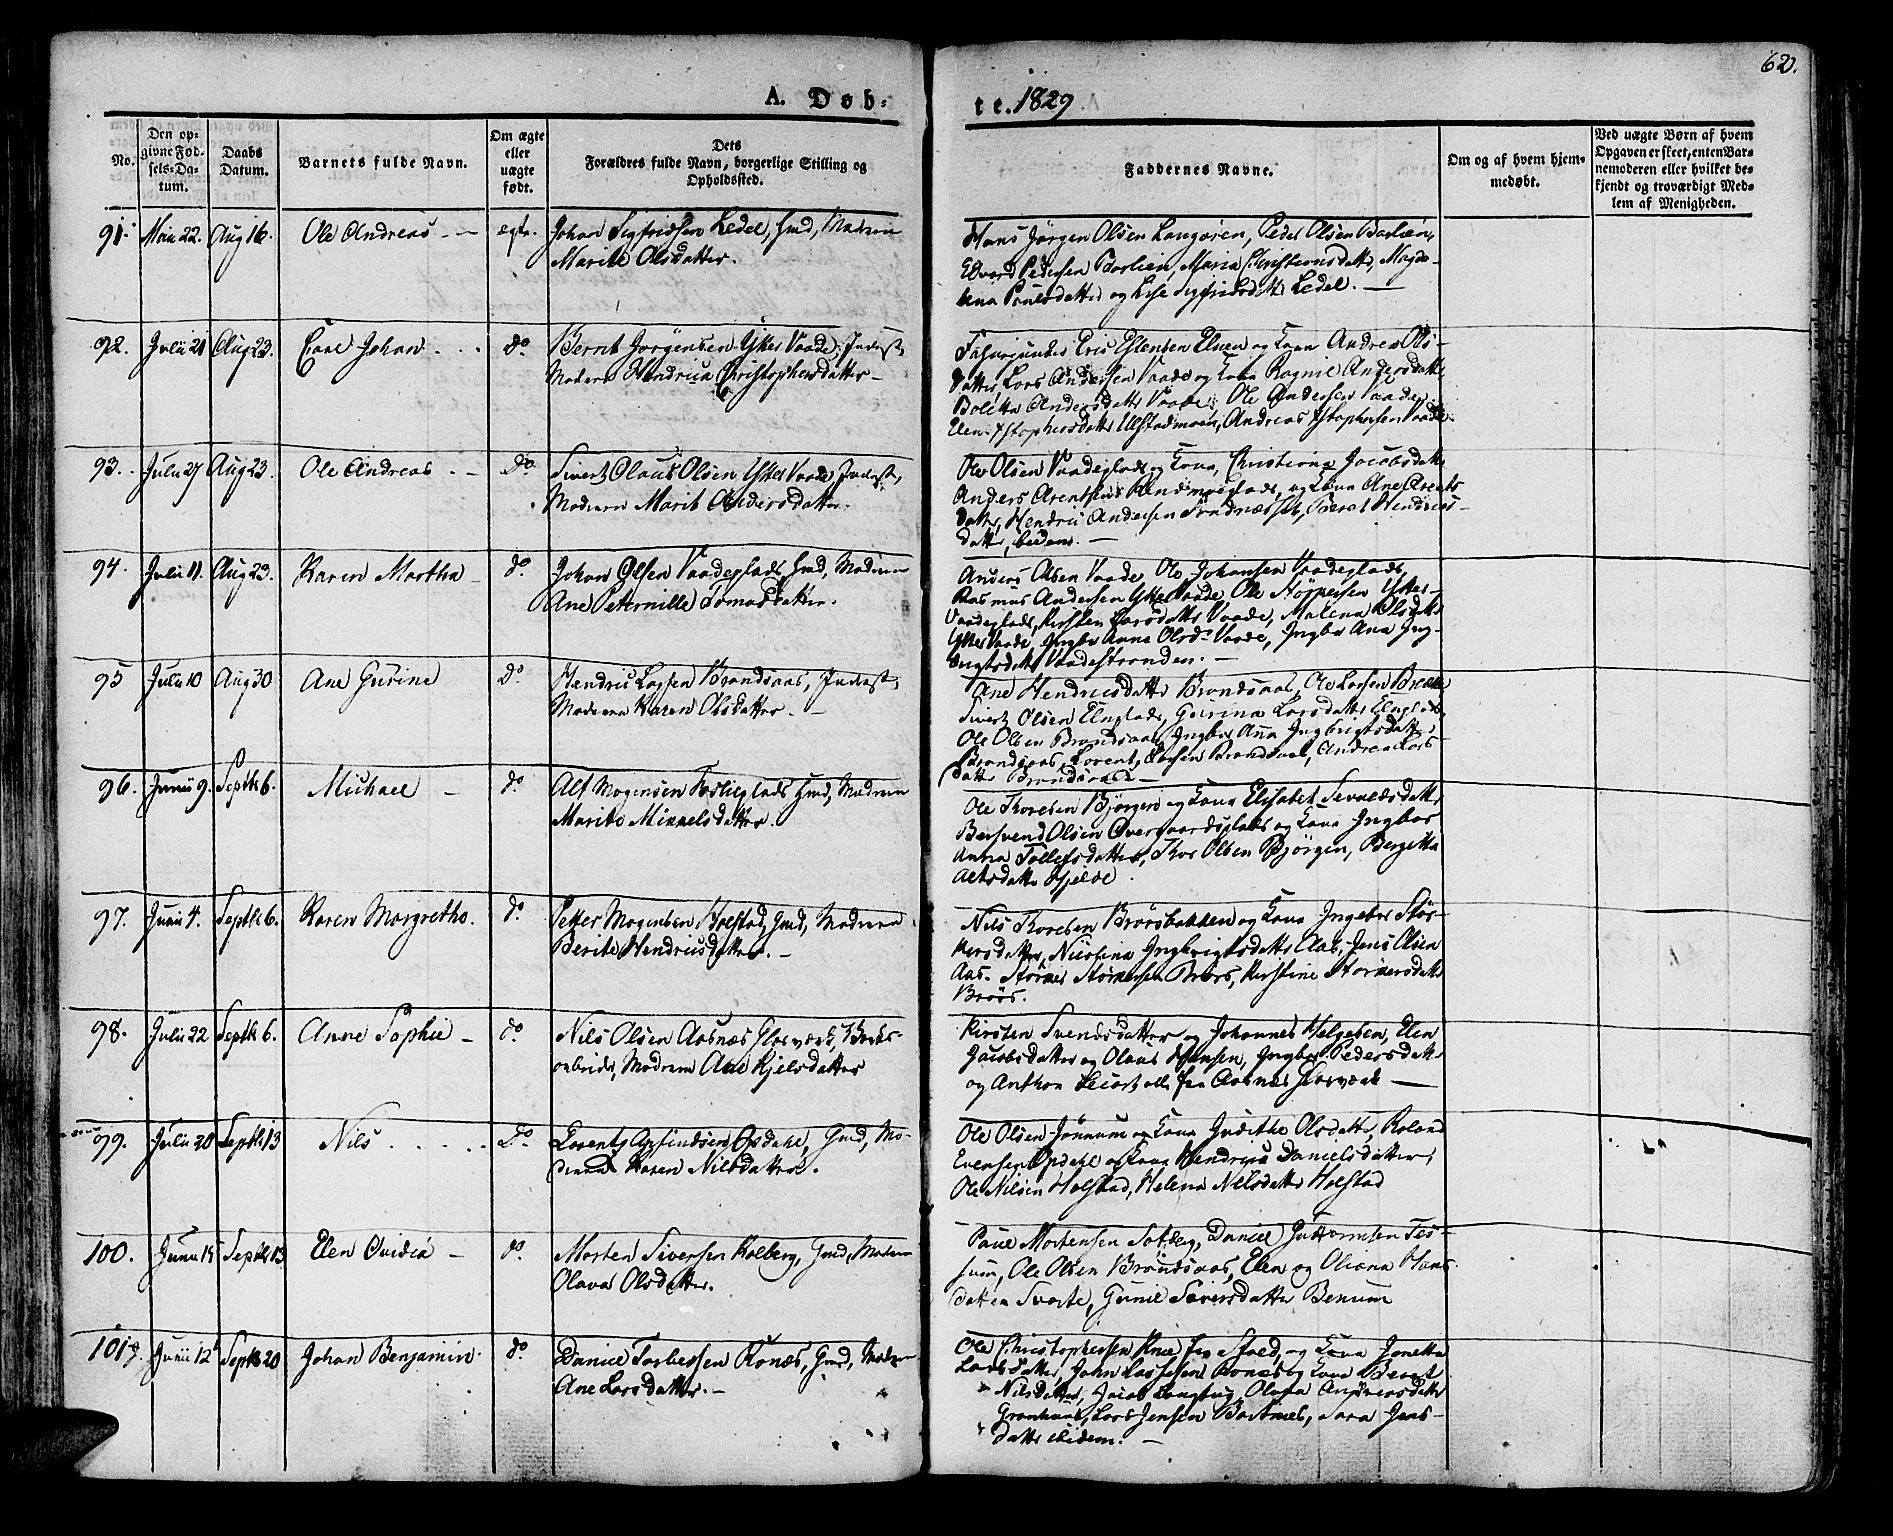 62.
A. Døb-
te. 1829
No.
Den op-
givne Fød-
sels-Da-
tum.
Daabs
Datum.
Barnets fulde Navn.
Om ægte
eller
uægte
født.
Dets
Forældres fulde Navn, borgerlige Stilling og
Opholdssted.
Faddernes Navne.
Om og af hvem hjem-
medøbt.
Ved uægte Børn af hvem
Opgaven er skeet, enten Bar-
nemoderen eller hvilket be-
kjendt og troværdigt Med-
lem af Menigheden.
91. Maii 22. Aug 16. Ole Andreas egte. Johan Sigfridsen Ledel, Gmd, Modren
Marite Olsdatter.
Hans Jørgen Olsen Langøren, Peder Olsen Barlien,
Edvard Pedersen Barlien, Maria Christiansdatter, Magde-
lena Paulsdatter og Lise Sigfridsdatter Ledel.
92. Julii 21 Aug 23. Carl Johan do Bernt Jørgensen Ytter Vaade, Inderst,
Modren Hendrica Christophersdatter
Eric Estensen Elnen og Kona Andrea Ols-
datter Lars Andersen Vaade og Kona Ragnil Andersdatter
Boletta Andersdatter Vaade, Ole Andersen Vaade,
Elen Xstophersdatter Ulstadmoen, Andreas Xstophersen Vaade
93. Julii 27 Aug 23. Ole Andreas do Sivert Olaus Olsen Ytter Vaade, Inderst,
Modren Marit Andersdatter.
Ole Olsen Vaadeplads og Kona, Christiana Jacobsdatter
Anders Arentsen og Kona Ane Arents
datter, Hendric Andersen Beret Hendrics-
datter, ibidem.
94. Julii 11. Aug 23. Karen Martha do Johan Olsen Vaadeplads, Gmd, Modren
Ane Peternille Tomasdatter.
Anders Olsen Vaade, Ole Johansen Vaadeplads,
Rasmus Andersen Ytter Vaade, Ole Størkersen Ytter-
Vaadeplads, Kirsten Larsdatter Vaade, Malena Olsdatter
Ytter Vaade, Ingbor Anna Olsd. Vaade, Ingbor Ana Ing-
brigtsdatter Vaadestranden.
95 Julii 10 Aug 30 Ane Gurine do Hendric Larsen Brandsaas, Inderst,
Modren Karen Olsdatter.
Ane Hendricsdatter Brandsaas, Ole Larsen Brække
Sivert Olsen Elnplads, Gurina Larsdatter Elnplads
Ole Olsen Brandsaas, Ingbor Anna Ingbrigtsdatter
Brandsaas, Lorents Larsen Brandsaas, Andrea Lars
datter Brandsaas
96. Junii 9. Septbr 6. Michael do Alf Mogensen Gmd, Modren
Marite Mikkelsdatter.
Ole Thoresen Bjørgen og Kona Elisabet Sevaldsdatter
Bersvend Olsen Overgaardsplads og Kona Ingbor
Anna Tollefsdatter, Thor Olsen Bjørgen, Bergitta
Alfsdatter Hjelde.
97. Junii 4. Septbr 6. Karen Margretha. do Petter Mogensen Holstad, Gmd, Modren
Berite Hendricsdatter.
Nils Thoresen Brørsbakken og Kona Ingebor Stør-
kersdatter, Nicolina Ingbrigtsdatter Aas, Jens Olsen
Aas. Størker Størkersen Brørs, Kirstine Størkersdatter
Brørs.
98. Julii 22 Septbr 6. Anne Sophie do Nils Olsen Aasnæs Glasværk, Verks-
arbeider, Modren Ane Kjelsdatter
Kirsten Svendsdatter og Johannes Helgesen, Elen
Jacobsdatter og Olaus Hansen, Ingbor Pedersdatter
og Anthon alle fra Aasnæs Glasværk
99. Julii 20 Septbr 13 Nils do Lorents Opdahl, Gmd, Mo-
dren Karen Nilsdatter.
Ole Olsen Jønnum og Kona Judithe Olsdatter, Roland
Evensen Opdahl og Kona Hendrica Danielsdatter,
Ole Nilsen Holstad, Helena Nilsdatter Holstad
100. Junii 15 Septbr 13 Elen Ovidia do Morten Siversen Kolberg, Gmd, Modren
Olava Olsdatter.
Paul Mortensen Daniel Guttormsen Tes-
sum, Ole Olsen Brandsaas, Elen og Oliana Hans
datter Svarte, Gunil Siversdatter Benum
101. Junii 12 Septbr 20 Johan Benjamin do Daniel Torbersen Konæs, Gmd, Modren
Ane Larsdatter.
Ole Christophersen og Kona Jonetta
Larsdatter, John Lassesen Konæs og Kona Beret
Nilsdatter, Jacob Langtug, Olava Andreasdatter
Granhaug, Lars Jensen Sara Jens-
datter ibidem.